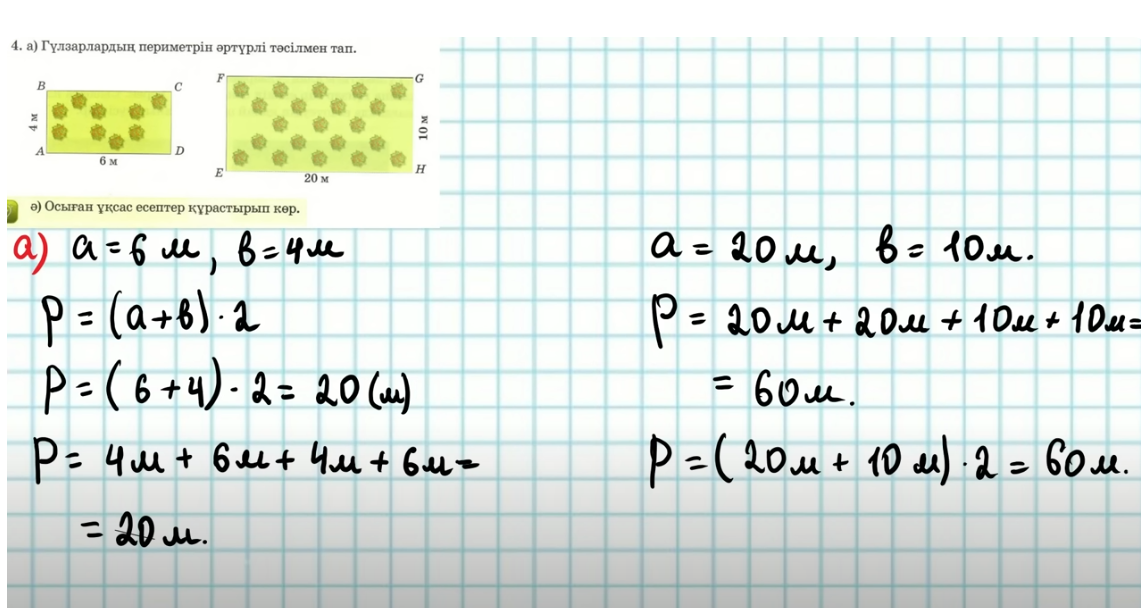 4. а) Гүлзарлардың периметрін әртүрлі тәсілмен тап.
B C
4 м
A D
6 м
F G
10 м
E H
20 м
ә) Осыған ұқсас есептер құрастырып көр.
а) a = 6 м, в = 4 м
P = (a + в) · 2
P = (6 + 4) · 2 = 20 (м)
P = 4 м + 6 м + 4 м + 6 м =
= 20 м.
a = 20 м, в = 10 м.
P = 20 м + 20 м + 10 м + 10 м =
= 60 м.
P = (20 м + 10 м) · 2 = 60 м.